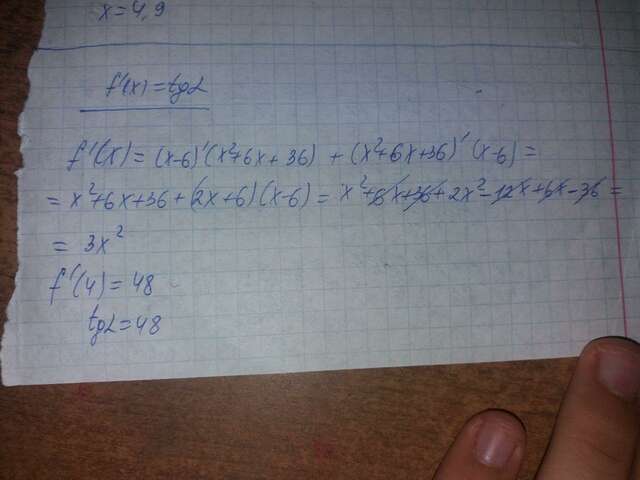 x=4,9
f'(x)=tgα
f'(x)=(x-6)'(x²+6x+36)+(x²+6x+36)'(x-6)=
=x²+6x+36+(2x+6)(x-6)=x²+6x+36+2x²-12x+6x-36=
=3x²
f'(4)=48
tgα=48